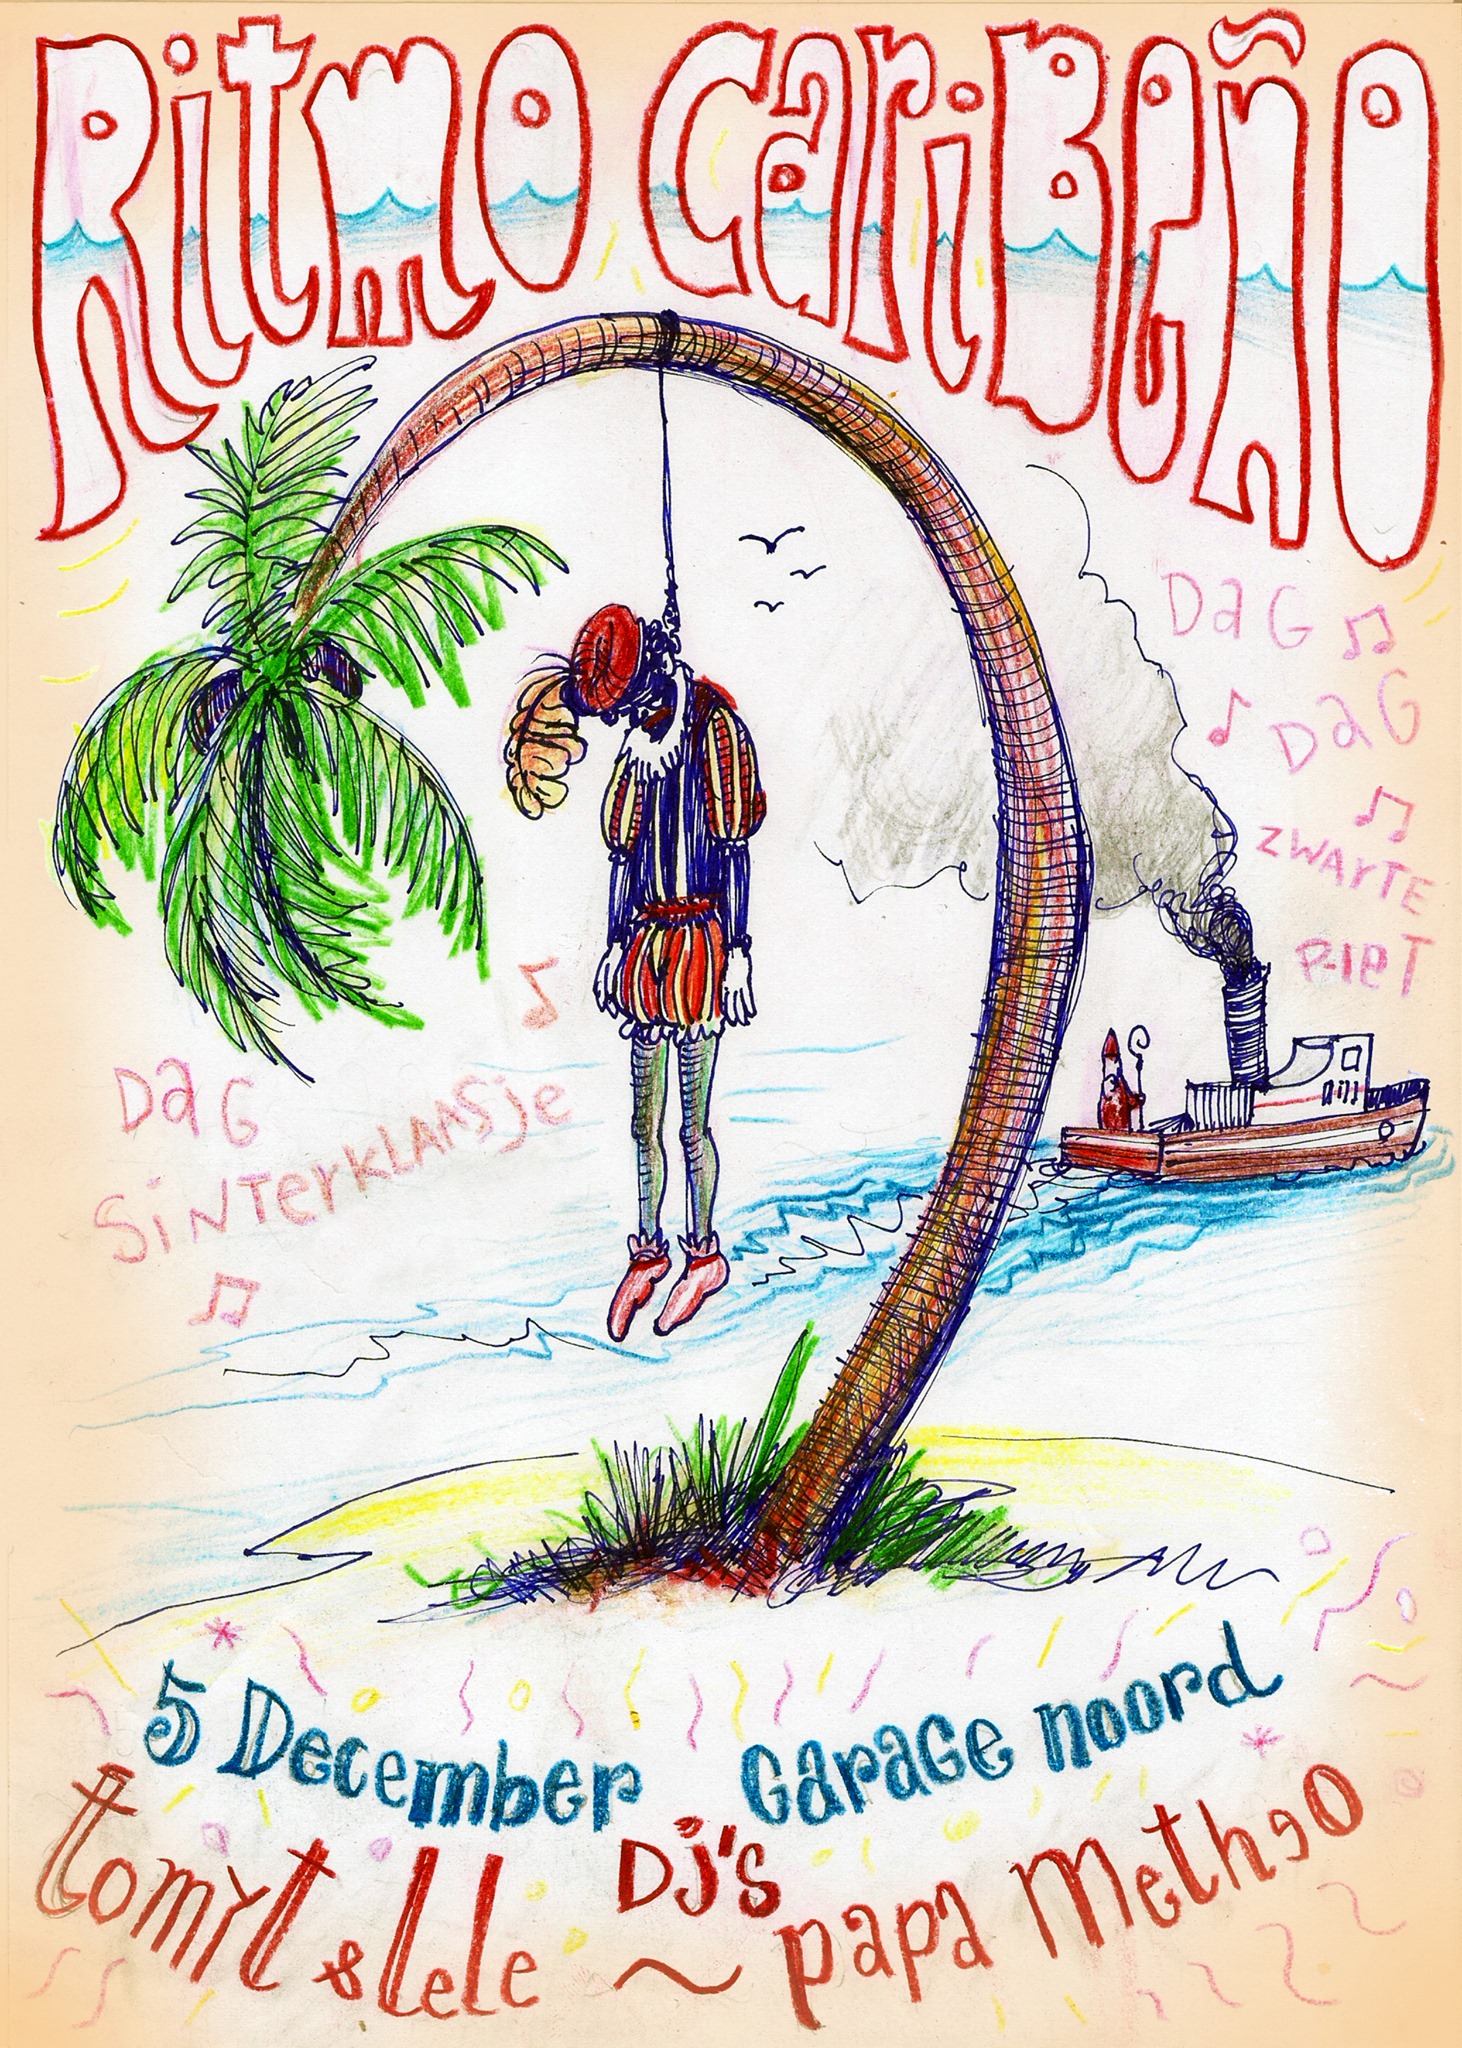 Ritmo CariBeño
DaG
DaG
ZWarTE
PieT
DaG
SiNTerKLAASje
5 December Garage noord
DJ's
tomyt & lele ~ papa Metheo